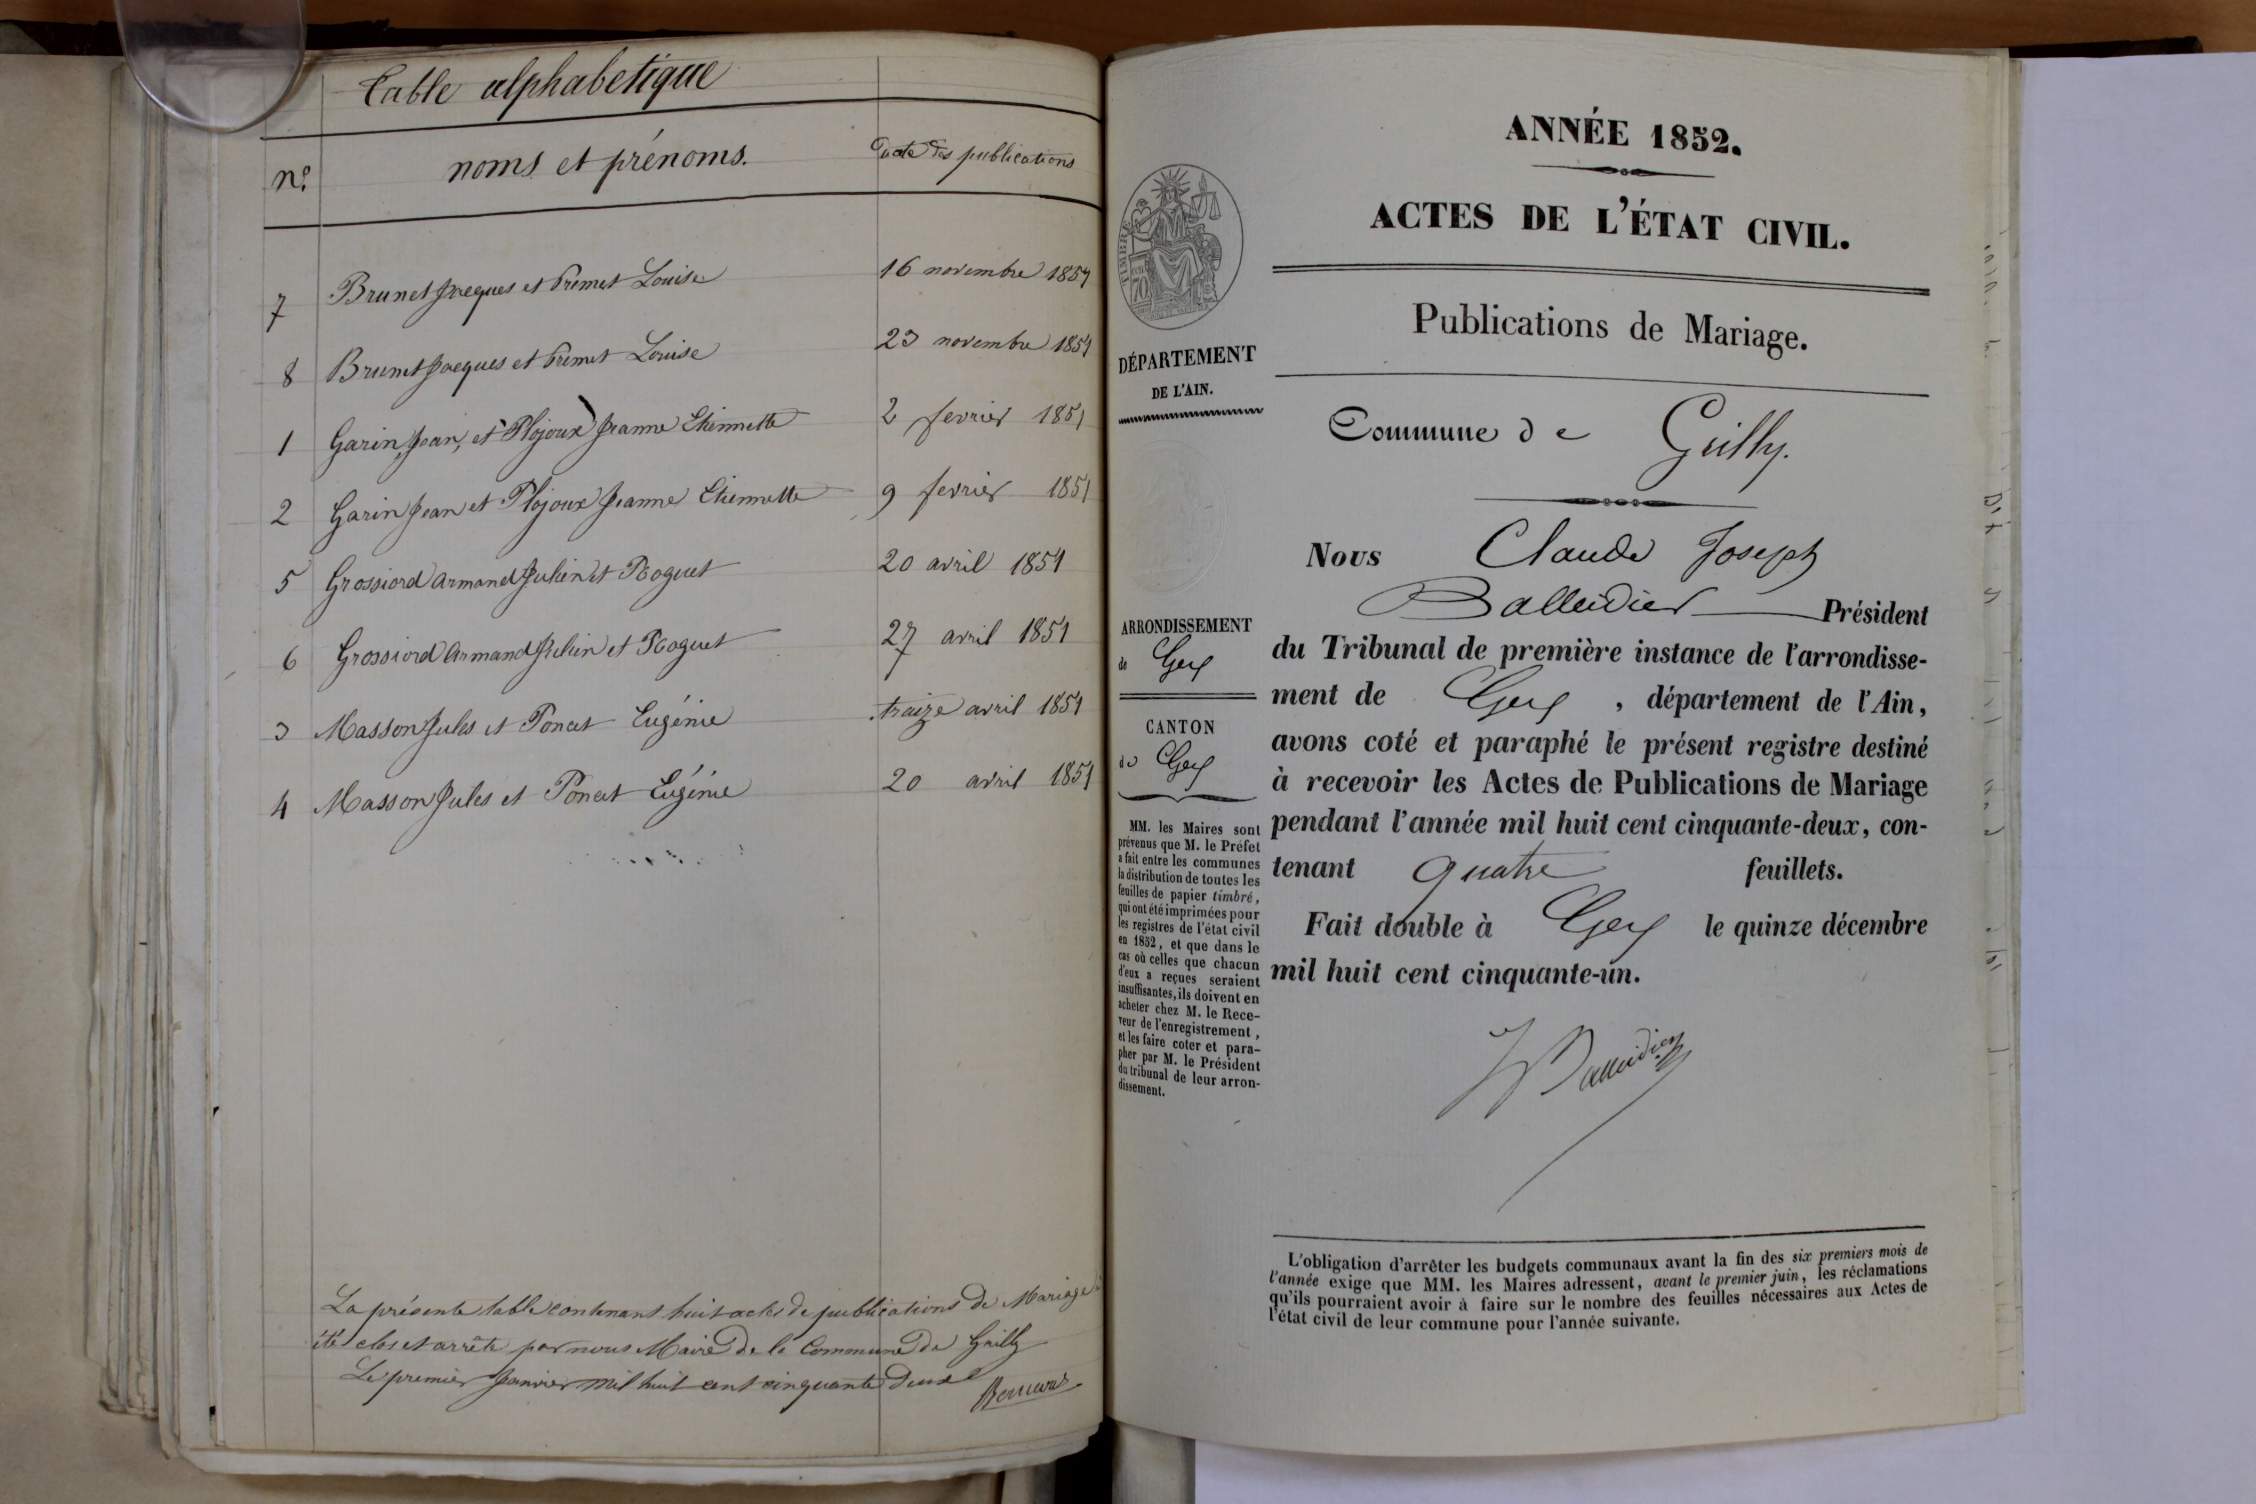 Table alphabetique
n° noms et prénoms. Date des publications
7 Brunet Jacques et Premet Louise 16 novembre 1851
8 Brunet Jacques et Premet Louise 23 novembre 1851
1 Garin, Jean, et Plojoux Jeanne Etiennette 2 fevrier 1851
2 Garin Jean et Plojoux Jeanne Etiennette 9 fevrier 1851
5 Grossiord Armand Julien et Roguet 20 avril 1851
6 Grossiord Armand Julien et Roguet 27 avril 1851
3 Masson Jules et Poncet Eugénie traize avril 1851
4 Masson Jules et Poncet Eugénie 20 avril 1851
La présente table contenant huit actes de publications de Mariage à
été clos et arrête par nous Maire de la Commune de Grilly
Le premier Janvier mil huit cent cinquante deux
ANNÉE 1852.
ACTES DE L'ÉTAT CIVIL.
Publications de Mariage.
TIMBRE
70
DÉPARTEMENT
DE L'AIN.
Commune de Grilly.
ARRONDISSEMENT
de Gex
CANTON
de Gex
MM. les Maires sont
prévenus que M. le Préfet
a fait entre les communes
la distribution de toutes les
feuilles de papier timbré,
qui ont été imprimées pour
les registres de l'état civil
en 1852, et que dans le
cas où celles que chacun
d'eux a reçues seraient
insuffisantes, ils doivent en
acheter chez M. le Rece-
veur de l'enregistrement,
et les faire coter et para-
pher par M. le Président
du tribunal de leur arron-
dissement.
Nous Claude Joseph
Balleidier Président
du Tribunal de première instance de l'arrondisse-
ment de Gex, département de l'Ain,
avons coté et paraphé le présent registre destiné
à recevoir les Actes de Publications de Mariage
pendant l'année mil huit cent cinquante-deux, con-
tenant quatre feuillets.
Fait double à Gex le quinze décembre
mil huit cent cinquante-un.
Balleidier
L'obligation d'arrêter les budgets communaux avant la fin des six premiers mois de
l'année exige que MM. les Maires adressent, avant le premier juin, les réclamations
qu'ils pourraient avoir à faire sur le nombre des feuilles nécessaires aux Actes de
l'état civil de leur commune pour l'année suivante.